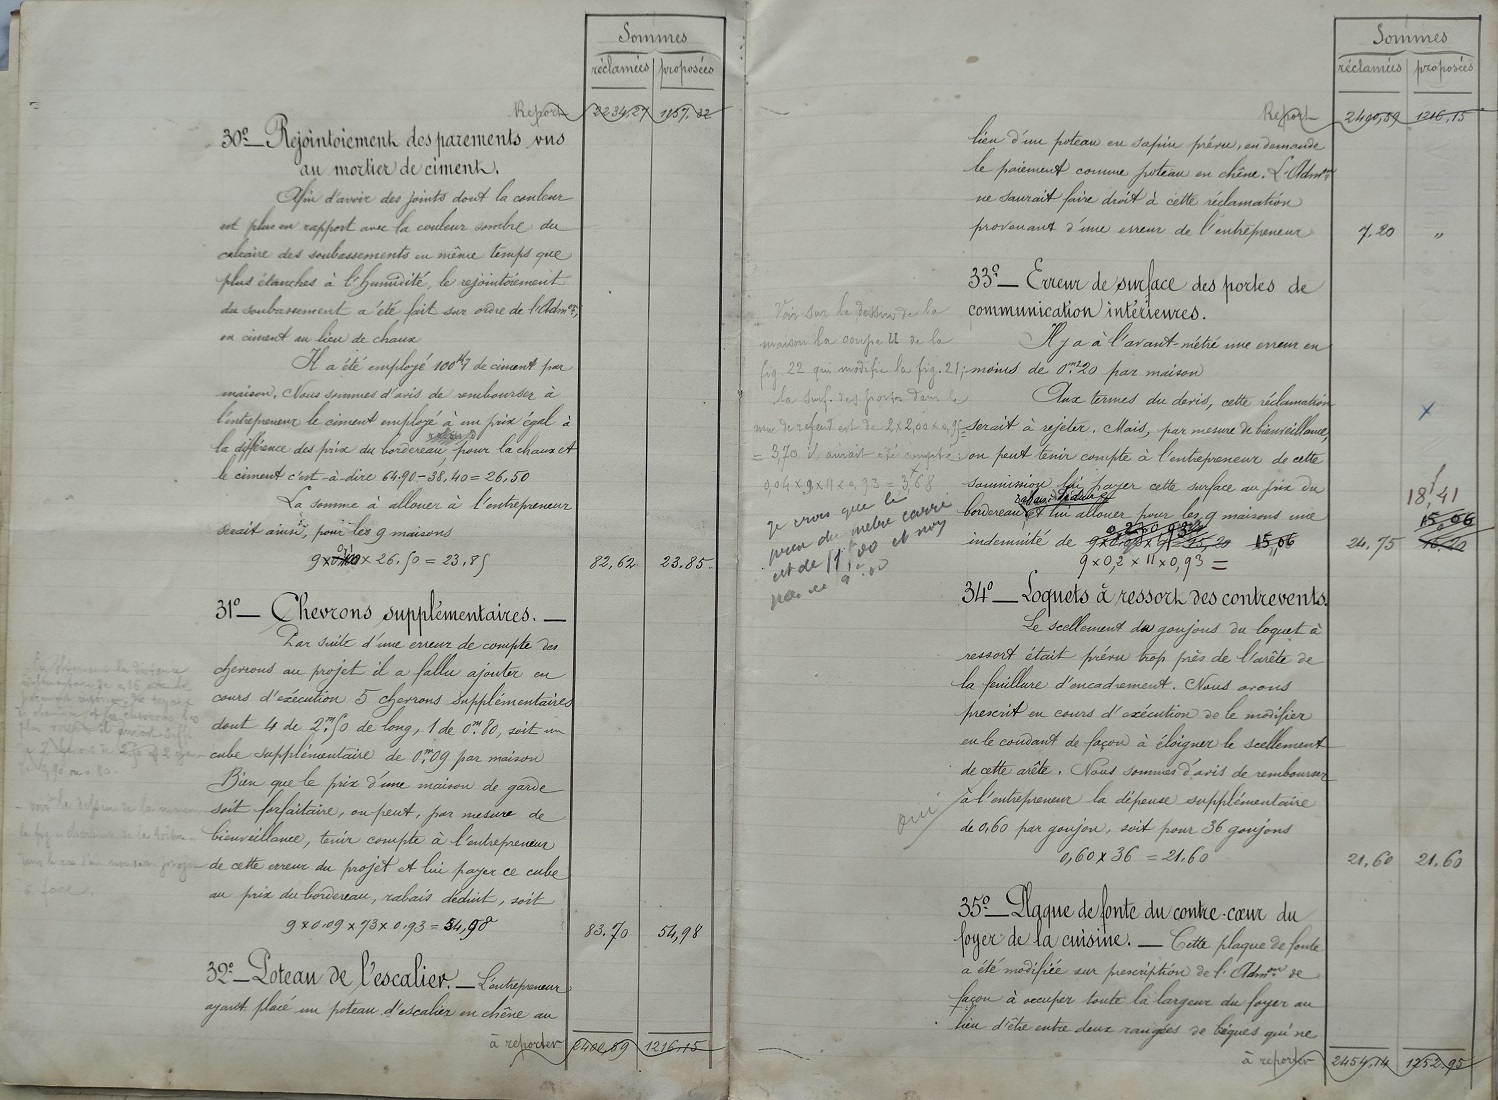 Sommes
réclamées proposées
Report 2234,27 1157,32
30° — Rejointoiement des parements vus
au mortier de ciment.
Afin d'avoir des joints dont la couleur
est plus en rapport avec la couleur sombre du
calcaire des soubassements en même temps que
plus étanches à l'humidité, le rejointoiement
du soubassement a été fait sur ordre de l'Admon,
en ciment au lieu de chaux
Il a été employé 100kg de ciment par
maison. Nous sommes d'avis de rembourser à
l'entrepreneur le ciment employé à un prix égal à
la différence des prix du bordereau pour la chaux et
le ciment c'est-à-dire 64.90 – 38,40 = 26,50
La somme à allouer à l'entrepreneur
serait ainsi, pour les 9 maisons
9 × 0,1 × 26.50 = 23.85 82,62 23.85
31° — Chevrons supplémentaires. —
Par suite d'une erreur de compte des
chevrons au projet il a fallu ajouter en
cours d'exécution 5 chevrons supplémentaires
dont 4 de 2m50 de long, 1 de 0m.80, soit un
cube supplémentaire de 0m09 par maison
Bien que le prix d'une maison de garde
soit forfaitaire, on peut, par mesure de
bienveillance, tenir compte à l'entrepreneur
de cette erreur du projet et lui payer ce cube
au prix du bordereau, rabais déduit, soit
9 × 0.09 × 73 × 0.93 = 54,98 83.70 54,98
32° — Poteau de l'escalier. — L'entrepreneur
ayant placé un poteau d'escalier en chêne au
à reporter 2400,59 1216,15
Sommes
réclamées proposées
Report 2400,59 1216,15
lieu d'un poteau en sapin prévu, en demande
le paiement comme poteau en chêne. L'Admon
ne saurait faire droit à cette réclamation
provenant d'une erreur de l'entrepreneur 7.20 "
33° — Erreur de surface des portes de
communication intérieures.
Il y a à l'avant-métré une erreur en
moins de 0m²20 par maison
Aux termes du devis, cette réclamation
serait à rejeter. Mais, par mesure de bienveillance,
on peut tenir compte à l'entrepreneur de cette
soumission lui payer cette surface au prix du
bordereau rabais déduit et lui allouer pour les 9 maisons une
indemnité de 15,06 24.75
18,41
15,06
9 × 0,2 × 11 × 0,93 =
Voir sur le dessin de la
maison la coupe II de la
fig. 22 qui modifie la fig. 21;
la surf. des portes dans le
mur de refend est de 2×2,00×0,95
= 3,70 il aurait été compté:
Je crois que le
prix du mètre carré
est de 11f,00 et non
pas de 9f.00
34° — Loquets à ressort des contrevents.
Le scellement du goujons du loquet à
ressort était prévu trop près de l'arête de
la feuillure d'encadrement. Nous avons
prescrit en cours d'exécution de le modifier
en le coudant de façon à éloigner le scellement
de cette arête. Nous sommes d'avis de rembourser
oui
à l'entrepreneur la dépense supplémentaire
de 0,60 par goujon, soit pour 36 goujons
0,60 × 36 = 21.60 21,60 21.60
35° — Plaque de fonte du contre-cœur du
foyer de la cuisine. — Cette plaque de fonte
a été modifiée sur prescription de l'Admon de
façon à occuper toute la largeur du foyer au
lieu d'être entre deux rangées de briques qui ne
à reporter 2454,14 1252.95